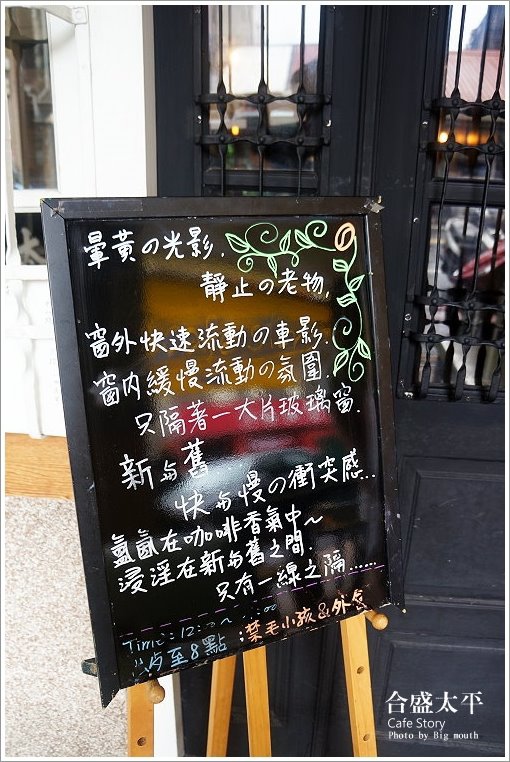 暈黃の光影,
靜止の老物,
窗外快速流動の車影.
窗內緩慢流動の氛圍.
只隔著一大片玻璃窗.
新与舊
快与慢の衝突感...
氤氳在咖啡香氣中～
浸淫在新与舊之間.
只有一線之隔......
Time: 12:
至8點 :禁毛小孩&外食
合盛太平
Cafe Story
Photo by Big mouth